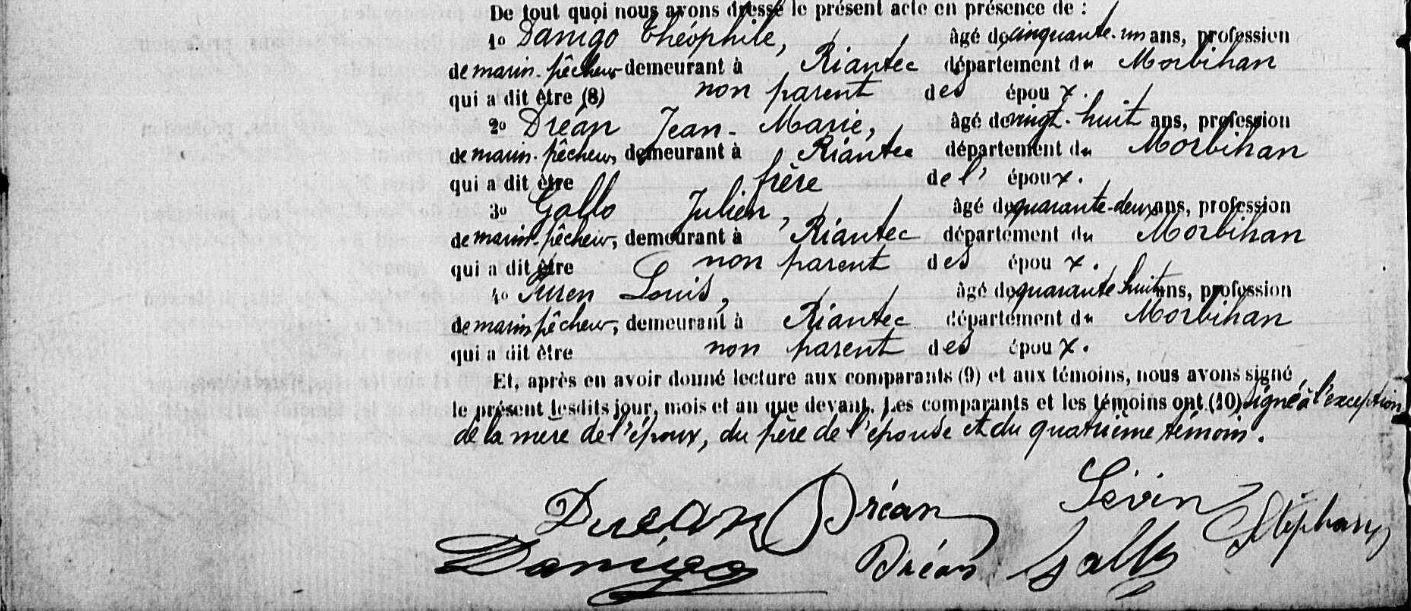 De tout quoi nous avons dressé le présent acte en présence de :
1o Danigo Théophile, âgé de cinquante-un ans, profession
de marin-pêcheur demeurant à Riantec département du Morbihan
qui a dit être (8) non parent des époux.
2o Dréan Jean-Marie, âgé de vingt-huit ans, profession
de marin-pêcheur, demeurant à Riantec département du Morbihan
qui a dit être frère de l'époux.
3o Gallo Julien, âgé de quarante-deux ans, profession
de marin-pêcheur, demeurant à Riantec département du Morbihan
qui a dit être non parent des époux.
4o Louis, âgé de quarante huit ans, profession
de marin pêcheur, demeurant à Riantec département du Morbihan
qui a dit être non parent des époux.
Et, après en avoir donné lecture aux comparants (9) et aux témoins, nous avons signé
le présent lesdits jour, mois et an que devant. Les comparants et les témoins ont (10) signé à l'exception
de la mère de l'époux, du père de l'épouse et du quatrième témoin.
Dréan Dréan Le Stéphany
Danigo Dréan Gallo